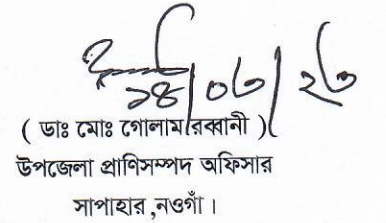 ১৪/০৩/২৩
( ডাঃ মোঃ গোলাম রব্বানী )
উপজেলা প্রাণিসম্পদ অফিসার
সাপাহার ,নওগাঁ ।